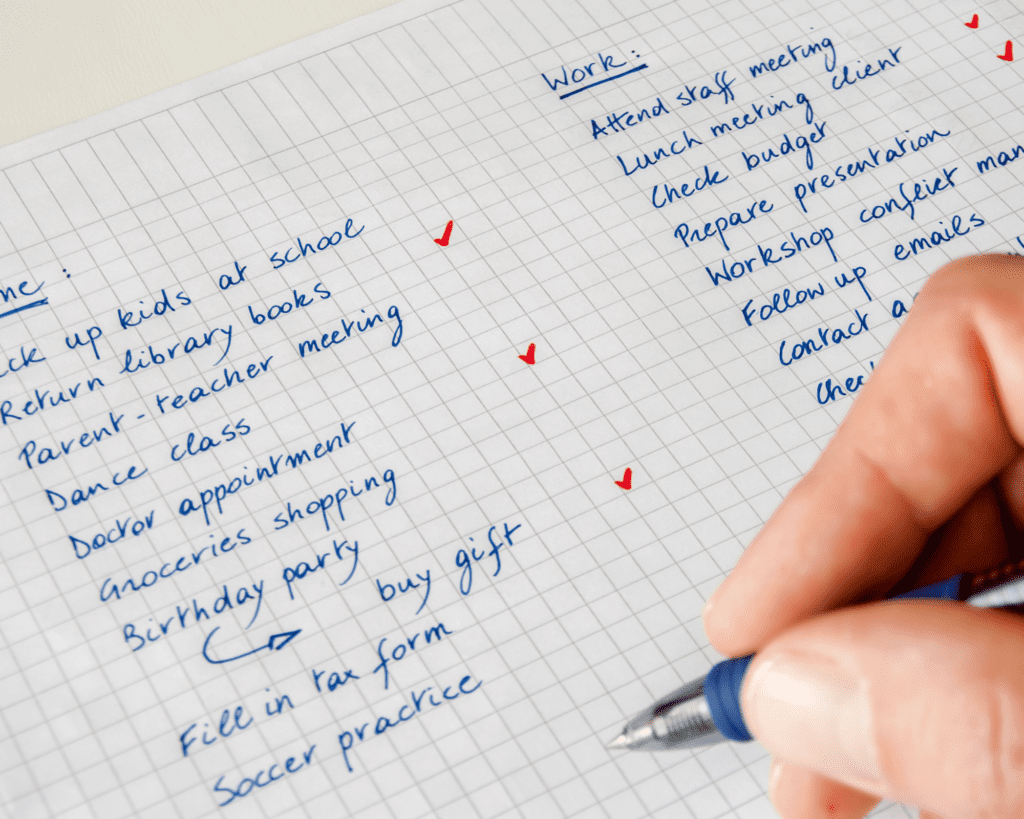 ne :
ck up kids at school
Return library books
Parent-teacher meeting
Dance class
Doctor appointment
Groceries shopping
Birthday party
buy gift
Fill in tax form
Soccer practice
Work :
Attend staff meeting
Lunch meeting client
Check budget
Prepare presentation
Workshop conflict man
Follow up emails
Contact